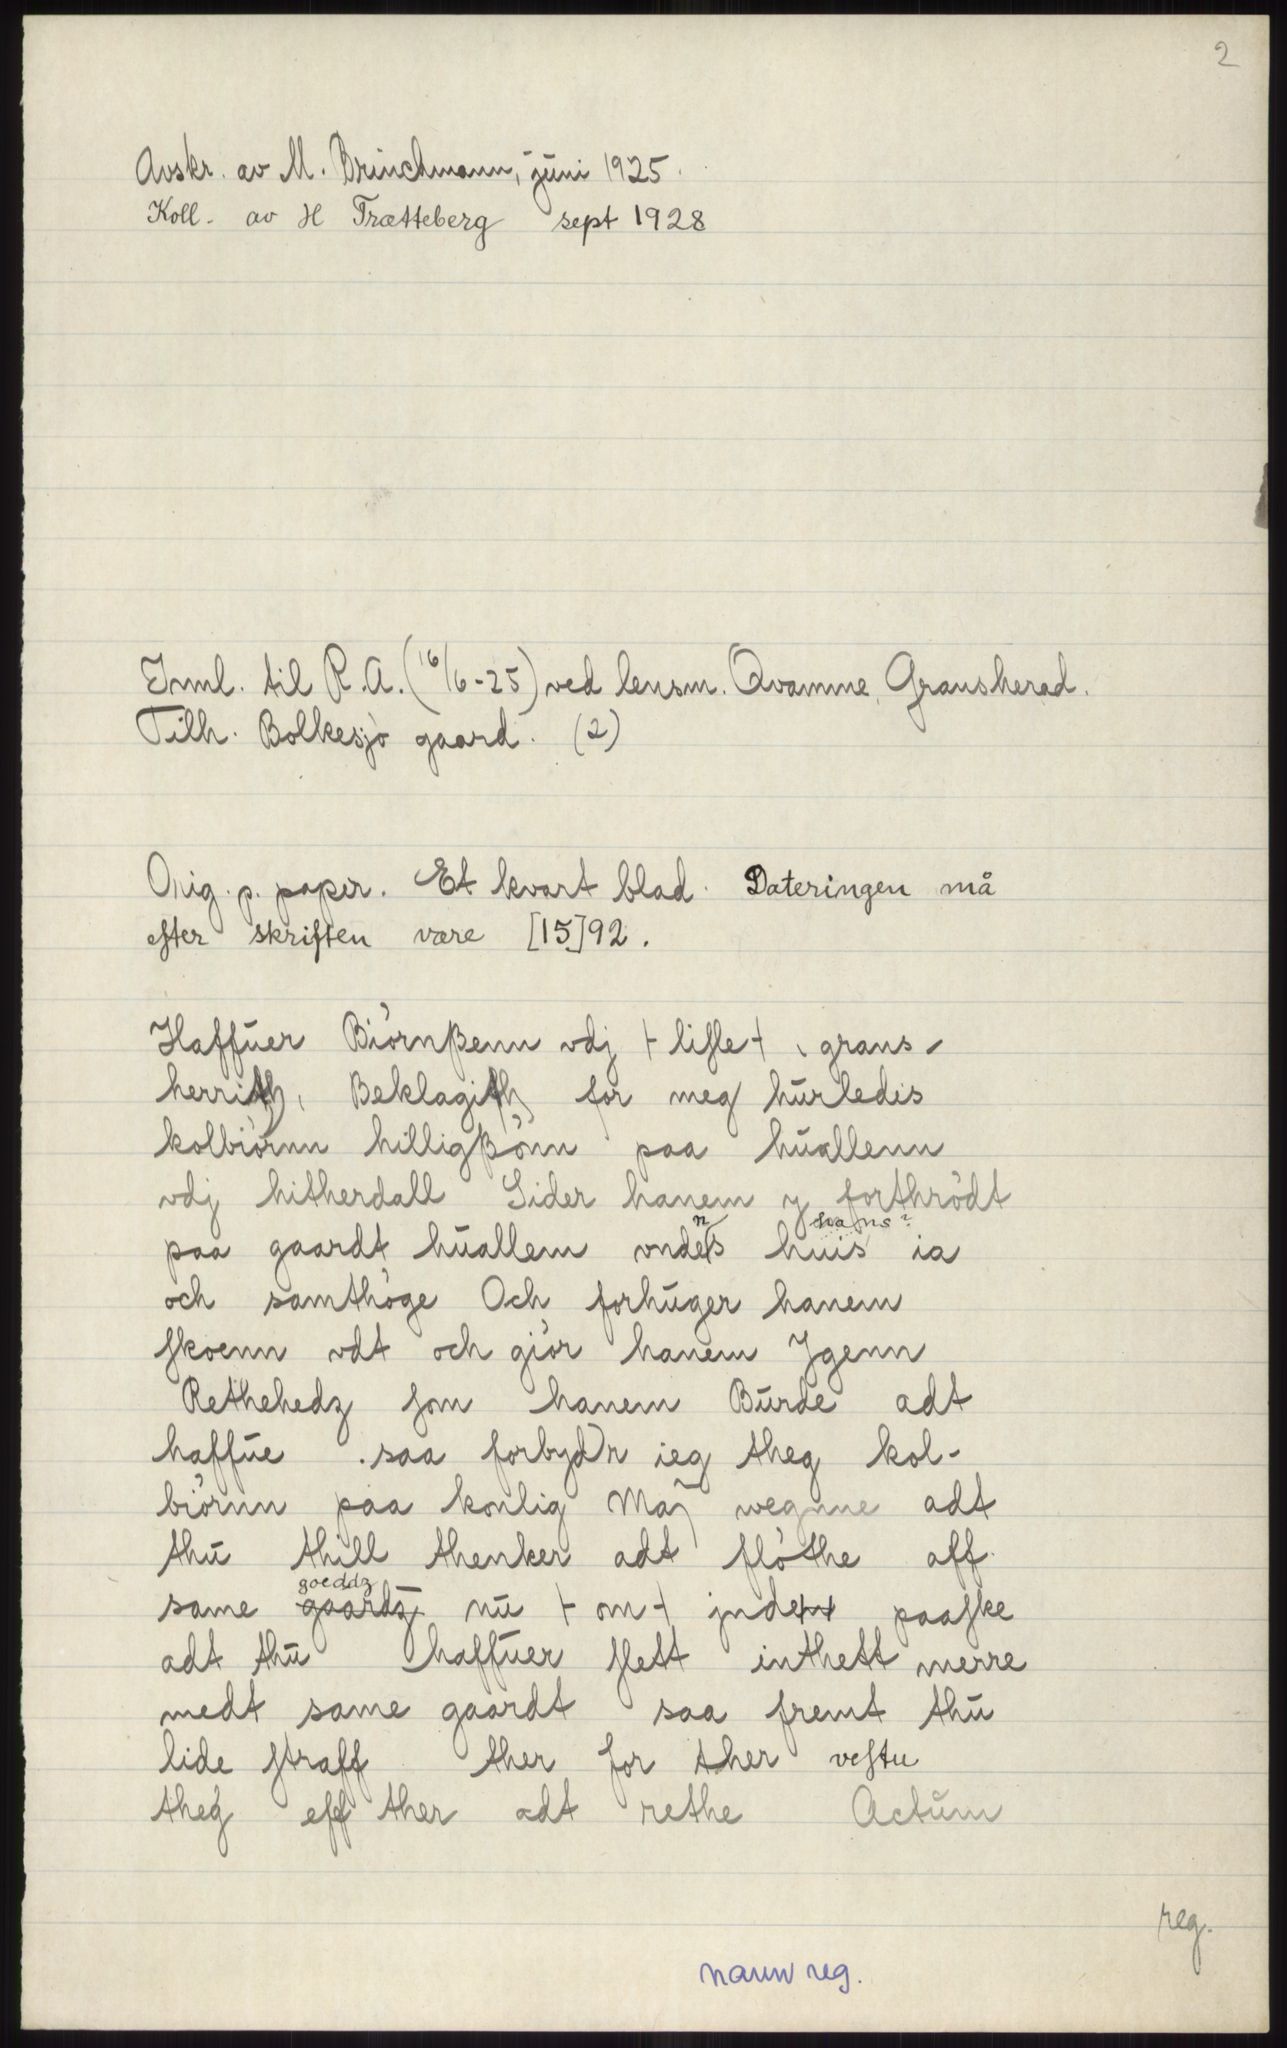 2
Avskr. av M. Brinchmann, juni 1925.
Koll. av H Trætteberg sept 1928
Innl. til R.A. (16/6-25) ved lensm. Qvamme, Gransherad.
Tilh. Bolkesjø gaard. (2)
Orig. p. papir. Et kvart blad. Dateringen må
efter skriften være [15]92.
Haffŭer Biörnßenn vdj + lisle + , grans-
herrith, Beklagith for meg hŭrledis
kolbiörnn hilligßönn paa hŭallenn
vdj hitherdall Sider hanem y forthrödt
hans?
paa gaardt hŭallem vnders huis ia
och samthöge Och forhŭger hanem
skoenn vdt och giör hanem Jgenn
Rethehedz som hanem Bŭrde adt
haffŭe . saa forbyder ieg theg kol-
biörnn paa konlig Maj wegnne adt
thŭ thill thenker adt flöthe aff
goeddz
same gaardz nŭ + om + jnden paaske
adt thŭ haffŭer slett inthett merre
medt same gaardt saa fremt thŭ
lide straff ther for ther vestu
theg eff ther adt rethe Actŭm
reg.
navnreg.